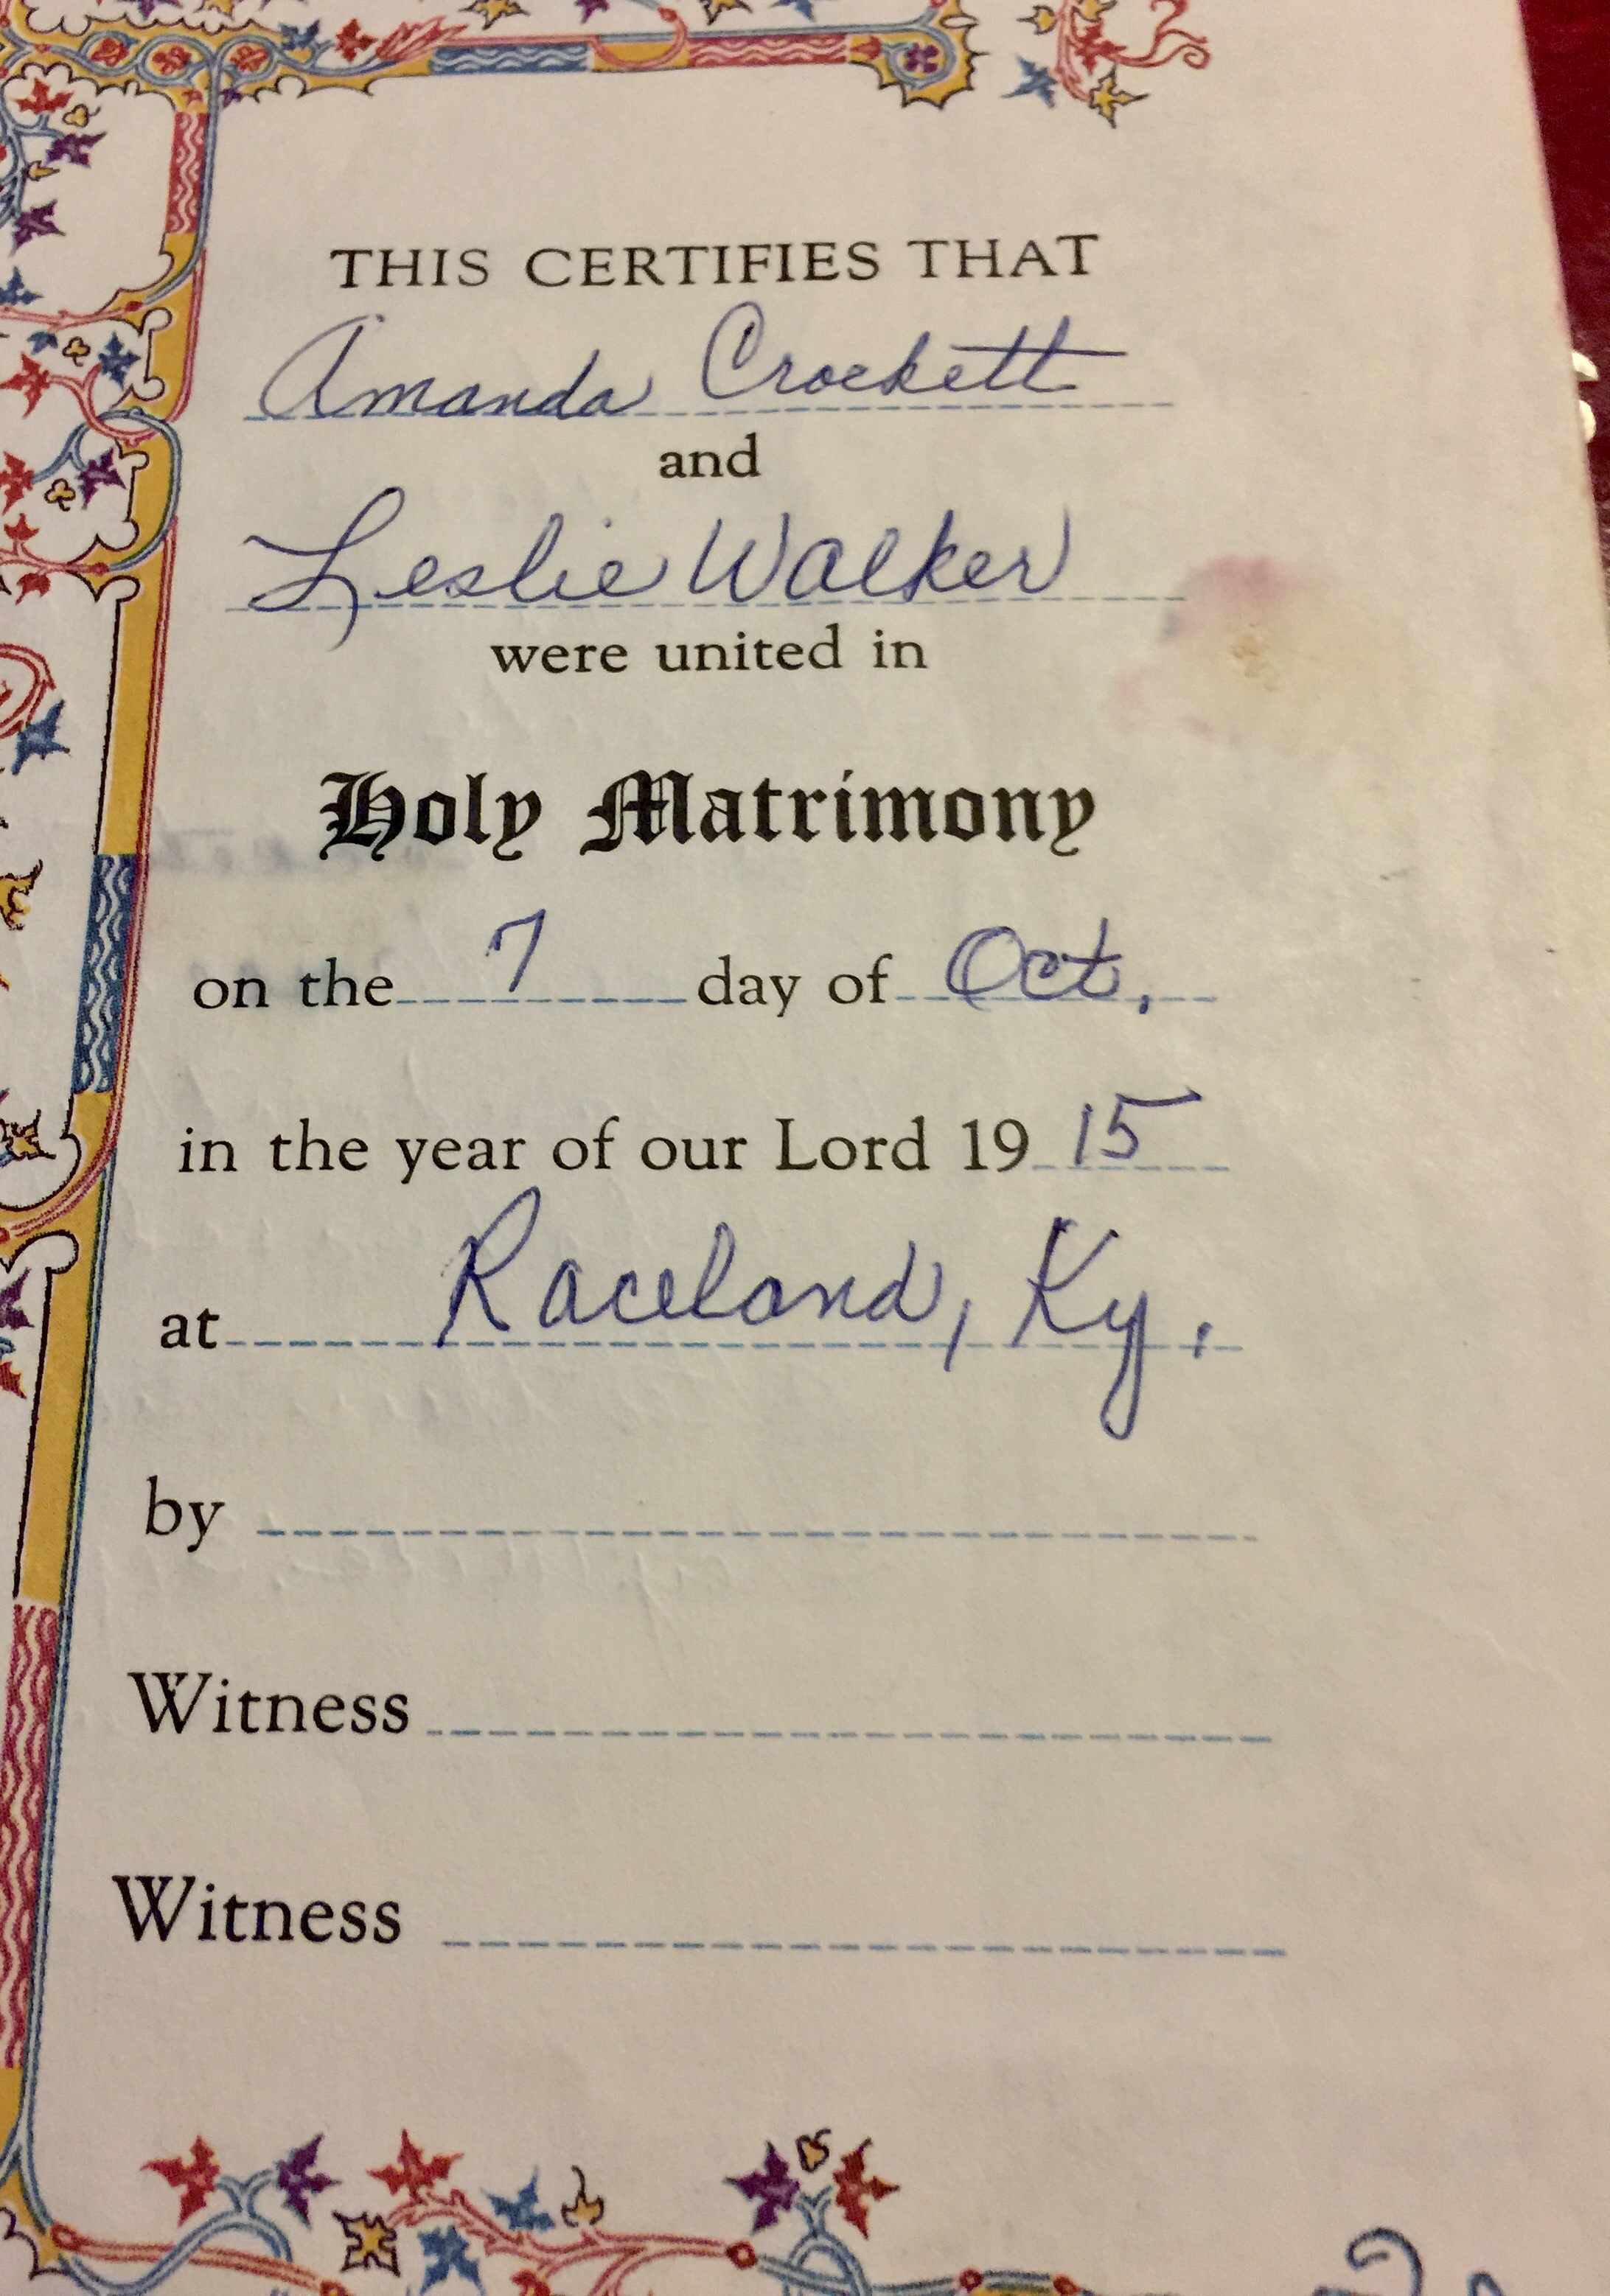 THIS CERTIFIES THAT
Amanda Crockett
and
Leslie Walker
were united in
Holy Matrimony
on the 7 day of Oct.
in the year of our Lord 19 15
at Raceland, Ky.
by
Witness
Witness